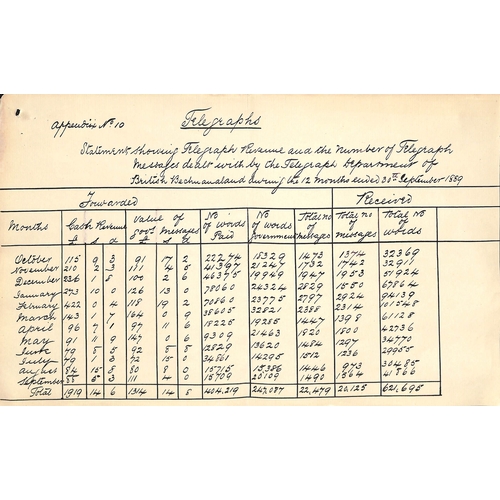 Appendix No 10
Telegraphs
Statement showing Telegraph Revenue and the Number of Telegraph
Messages dealt with by the Telegraph Department of
British Bechuanaland during the 12 months ended 30th September 1889
Forwarded Received
Months Cash Revenue £ s d Value of Govt Messages £ s d No of words Paid No of words Government Total no of messages Total no of messages Total No of words
October 115 9 3 91 17 2 22274 18329 1473 1374 32369
November 210 2 3 181 4 5 41397 21247 1732 1742 32911
December 236 1 8 100 2 6 46375 19949 1947 1953 51924
January 273 10 0 126 13 0 78060 24324 2829 1550 67864
February 422 0 4 118 19 2 70860 23775 2797 2924 94139
March 143 1 7 164 0 9 38605 32821 2388 2314 101548
April 96 7 1 97 11 6 18225 19285 1447 1398 61128
May 91 11 9 147 0 6 9309 21463 1820 1800 42736
June 79 8 5 92 8 8 12829 13620 1484 1297 34770
July 79 0 3 72 15 0 34861 14295 1512 1236 29955
August 84 15 8 80 8 0 15715 15386 1446 973 30485
September 88 6 3 111 4 0 15709 20109 1490 1564 41866
Total 1919 14 6 1314 14 8 404,219 247,087 22,479 20,125 621,695